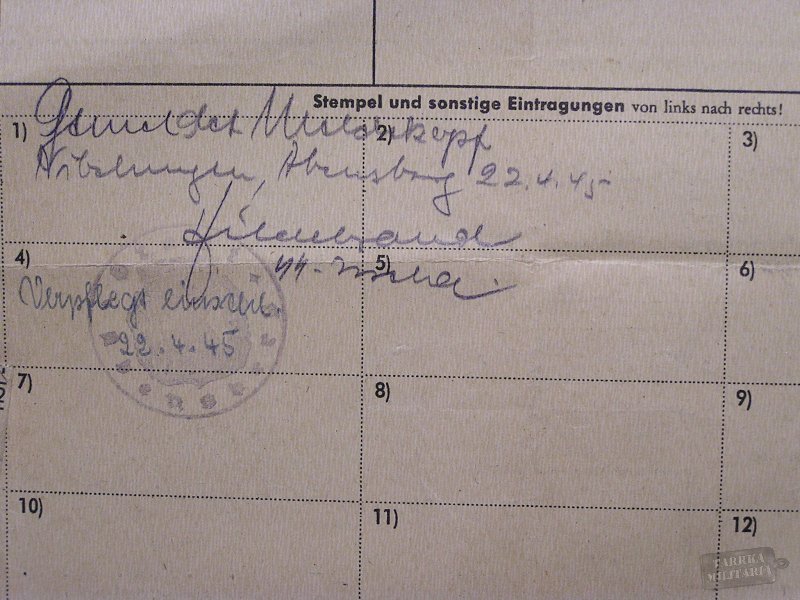 Stempel und sonstige Eintragungen von links nach rechts!
1) 2) 3)
Gemeldet Meldekopf
Nibelungen, Abensberg 22.4.45
Hildebrand
4) 5) 6)
Verpflegt einschl.
22.4.45
7) 8) 9)
10) 11) 12)
TARRKA
MILITARIA